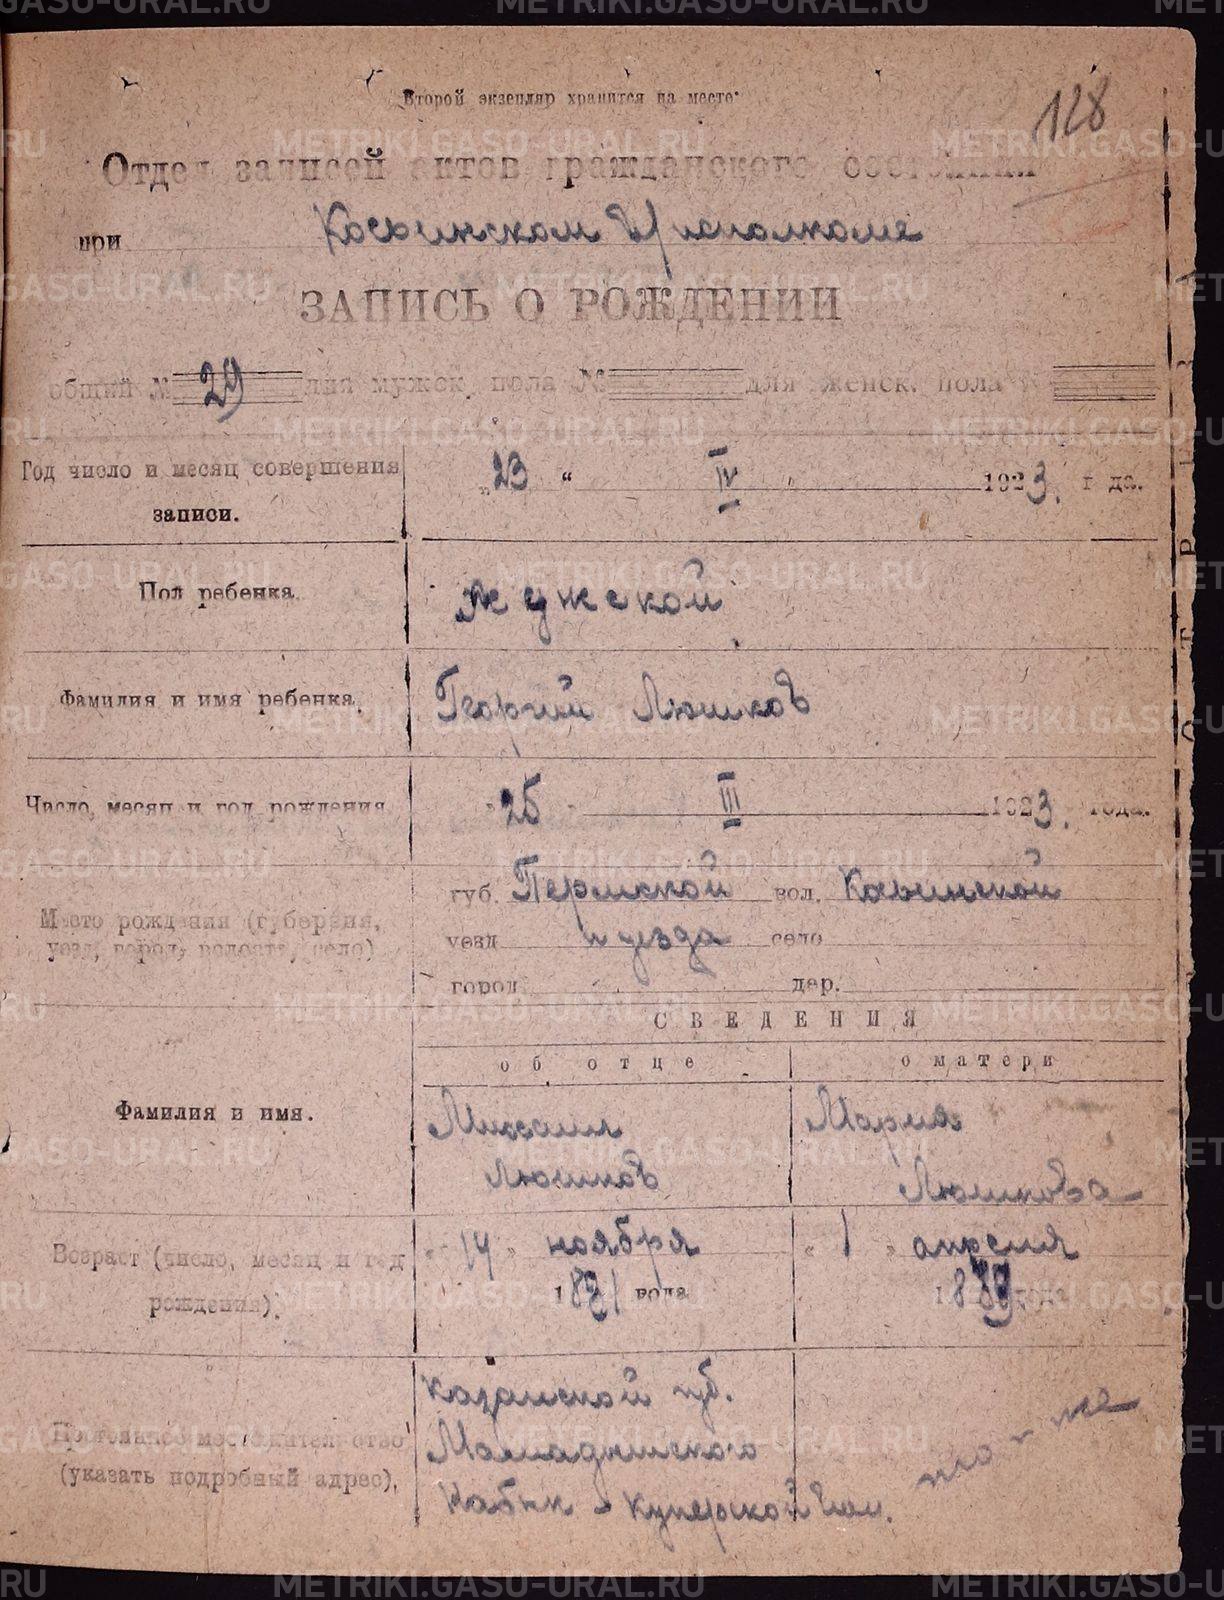 128
Второй экземпляр хранится на месте.
Отдел записей актов гражданского состояния
при Косьинском В/исполкоме
ЗАПИСЬ О РОЖДЕНИИ
общий № 29 для мужск. пола № для женск. пола №
Год число и месяц совершения записи.
„23“ IV 1923. года.
Пол ребенка.
Мужской
Фамилия и имя ребенка.
Георгий Люшков
Число, месяц и год рождения
25 III 1923. года.
Место рождения (губерния, уезд, город, волость, село)
губ. Пермской вол. Косьинской
уезд и уезда село
город дер.
СВЕДЕНИЯ
об отце о матери
Фамилия и имя.
Михаил Мария
Люшков Люшкова
Возраст (число, месяц и год рождения).
„14„ ноября „1„ апреля
1891 года 1899 года
Постоянное местожительство (указать подробный адрес).
Казанской губ.
Мамадышского
вол.
то-же
ОТРЕЗ
METRIKI.GASO-URAL.RU